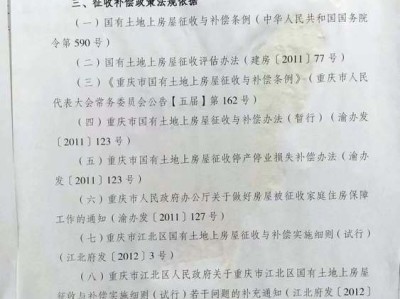 三、征收补偿政策法规依据
（一）国有土地上房屋征收与补偿条例（中华人民共和国国务院
令第 590 号）
（二）国有土地上房屋征收评估办法（建房〔2011〕77 号）
（三）《重庆市国有土地上房屋征收与补偿条例》（重庆市人民
代表大会常务委员会公告【五届】第 162 号）
（四）重庆市国有土地上房屋征收与补偿办法（暂行）（渝办发
〔2011〕123 号）
（五）重庆市国有土地上房屋征收停产停业损失补偿办法（渝办
发〔2011〕123 号）
（六）重庆市人民政府办公厅关于做好房屋被征收家庭住房保障
工作的通知（渝办发〔2011〕127 号）
（七）重庆市江北区国有土地上房屋征收与补偿实施细则（试行）
（江北府发〔2012〕3 号）
（八）重庆市江北区人民政府关于重庆市江北区国有土地上房屋
征收与补偿实施细则（试行）若干问题的补充通知（江北府发〔2012〕